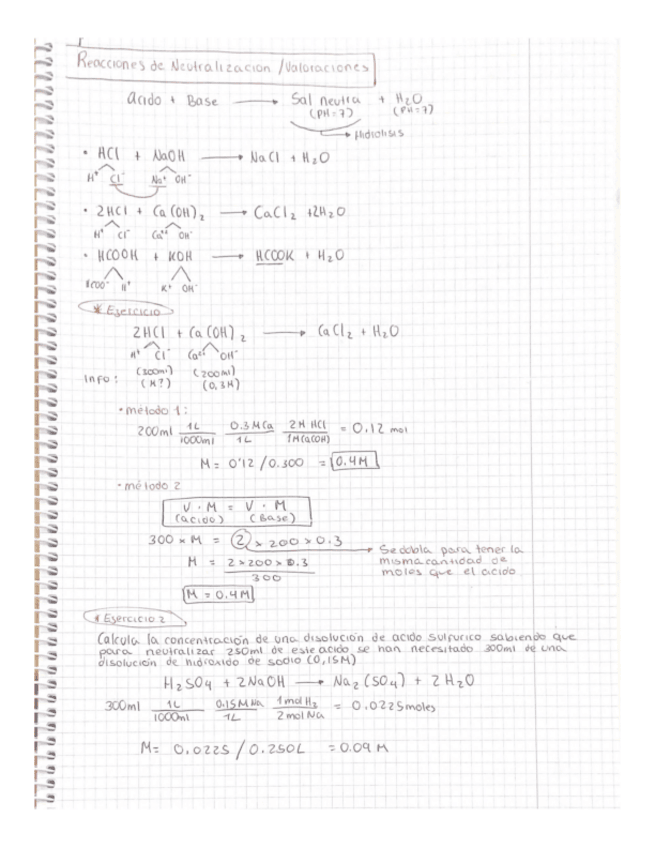 Reacciones de Neutralización / Valoraciones
Acido + Base → Sal neutra + H₂O
(PH=7) (PH=7)
→ Hidrolisis
• HCl + NaOH → NaCl + H₂O
H⁺ Cl⁻ Na⁺ OH⁻
• 2HCl + Ca(OH)₂ → CaCl₂ + 2H₂O
H⁺ Cl⁻ Ca²⁺ OH⁻
• HCOOH + KOH → HCOOK + H₂O
HCOO⁻ H⁺ K⁺ OH⁻
* Ejercicio
2HCl + Ca(OH)₂ → CaCl₂ + H₂O
H⁺ Cl⁻ Ca²⁺ OH⁻
Info: (300ml) (200ml)
(M?) (0,3M)
• método 1:
200ml 1L/1000ml 0.3MCa/1L 2M HCl/1MCa(OH) = 0.12 mol
M = 0'12 / 0.300 = 0.4M
• método 2
V · M = V · M
(acido) (Base)
300 × M = 2 × 200 × 0.3
→ Se dobla para tener la
misma cantidad de
moles que el acido
M = 2×200×0.3/300
M = 0.4M
* Ejercicio 2
Calcula la concentración de una disolución de acido sulfurico sabiendo que
para neutralizar 250ml de este acido se han necesitado 300ml de una
disolución de hidroxido de sodio (0,15M)
H₂SO₄ + 2NaOH → Na₂(SO₄) + 2H₂O
300ml 1L/1000ml 0.15MNa/1L 1molH₂/2molNa = 0.0225moles
M = 0.0225 / 0.250L = 0.09 M